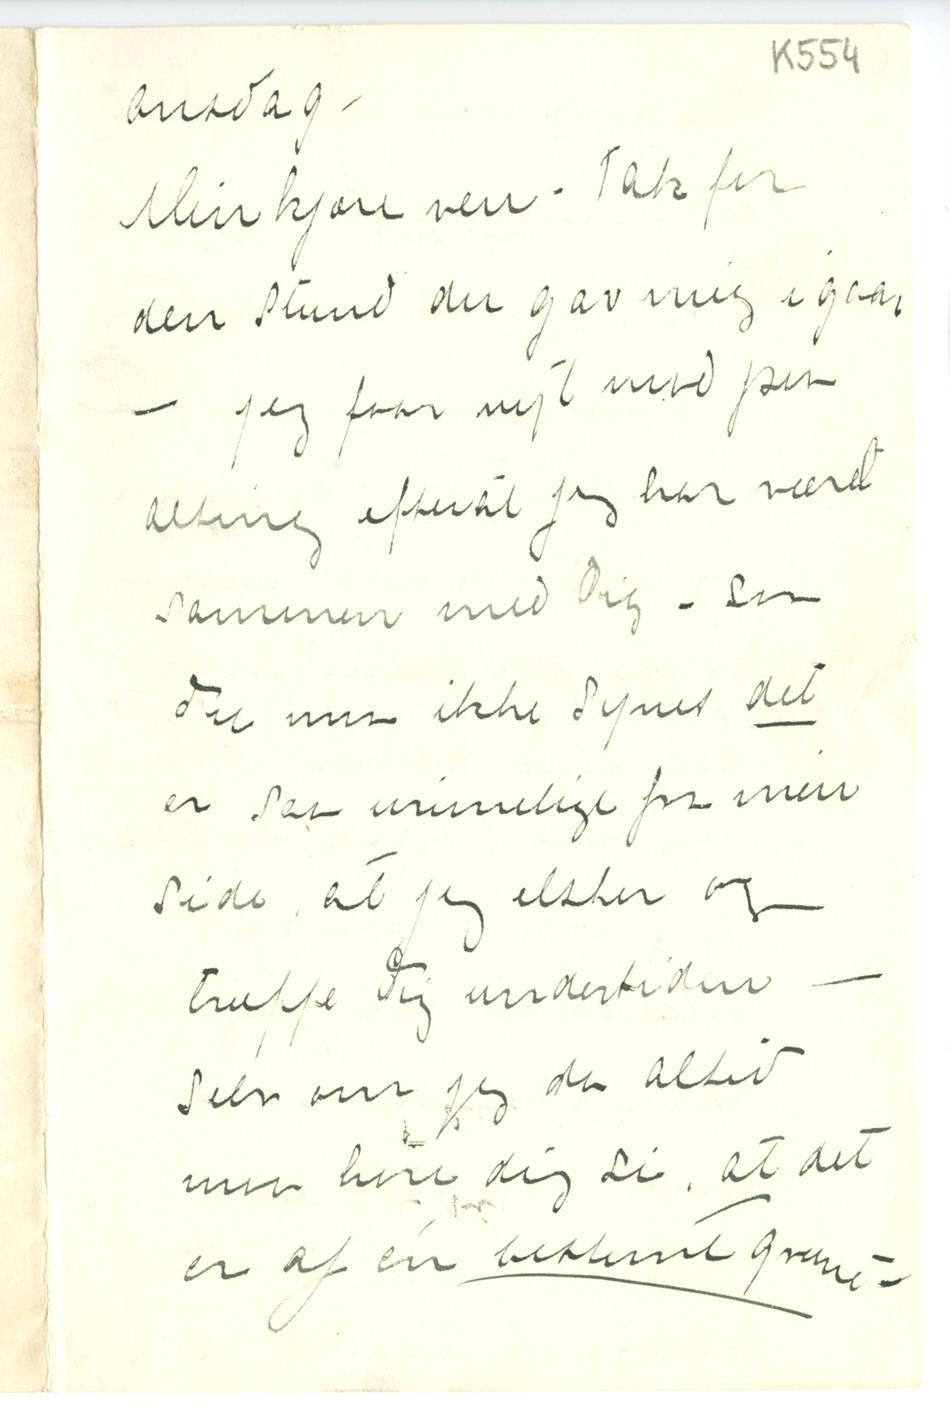 K554
onsdag –
Min kjære ven – Tak for
den Stund du gav mig igaar
– jeg faar nyt mod paa
alting efterat jeg har været
sammen med Dig – saa
Du maa ikke synes det
er saa urimelige fra min
side, at jeg elsker og
træffe Dig undertiden –
selv om jeg da altid
maa høre dig si, at det
er af én bestemt grund –